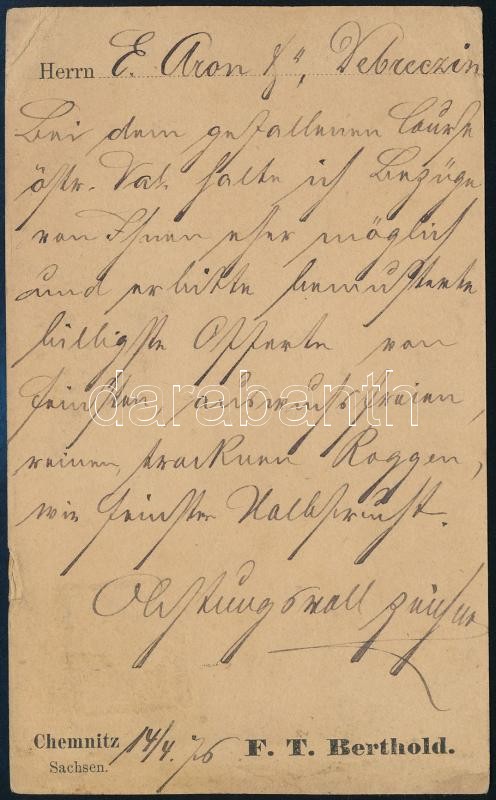 Herrn E. Aron & Co, Debreczin
Bei dem gefallenen Course
östr. Val. halte ich Bezüge
von Ihnen eher möglich
und erbitte bemusterte
billigste Offerte von
feinsten, auswuchsfreien,
reinen, trocknen Roggen,
wie feinster Halbfrucht.
Achtungsvoll zeichne
Chemnitz 14/4 76 F. T. Berthold.
Sachsen.
darabanth